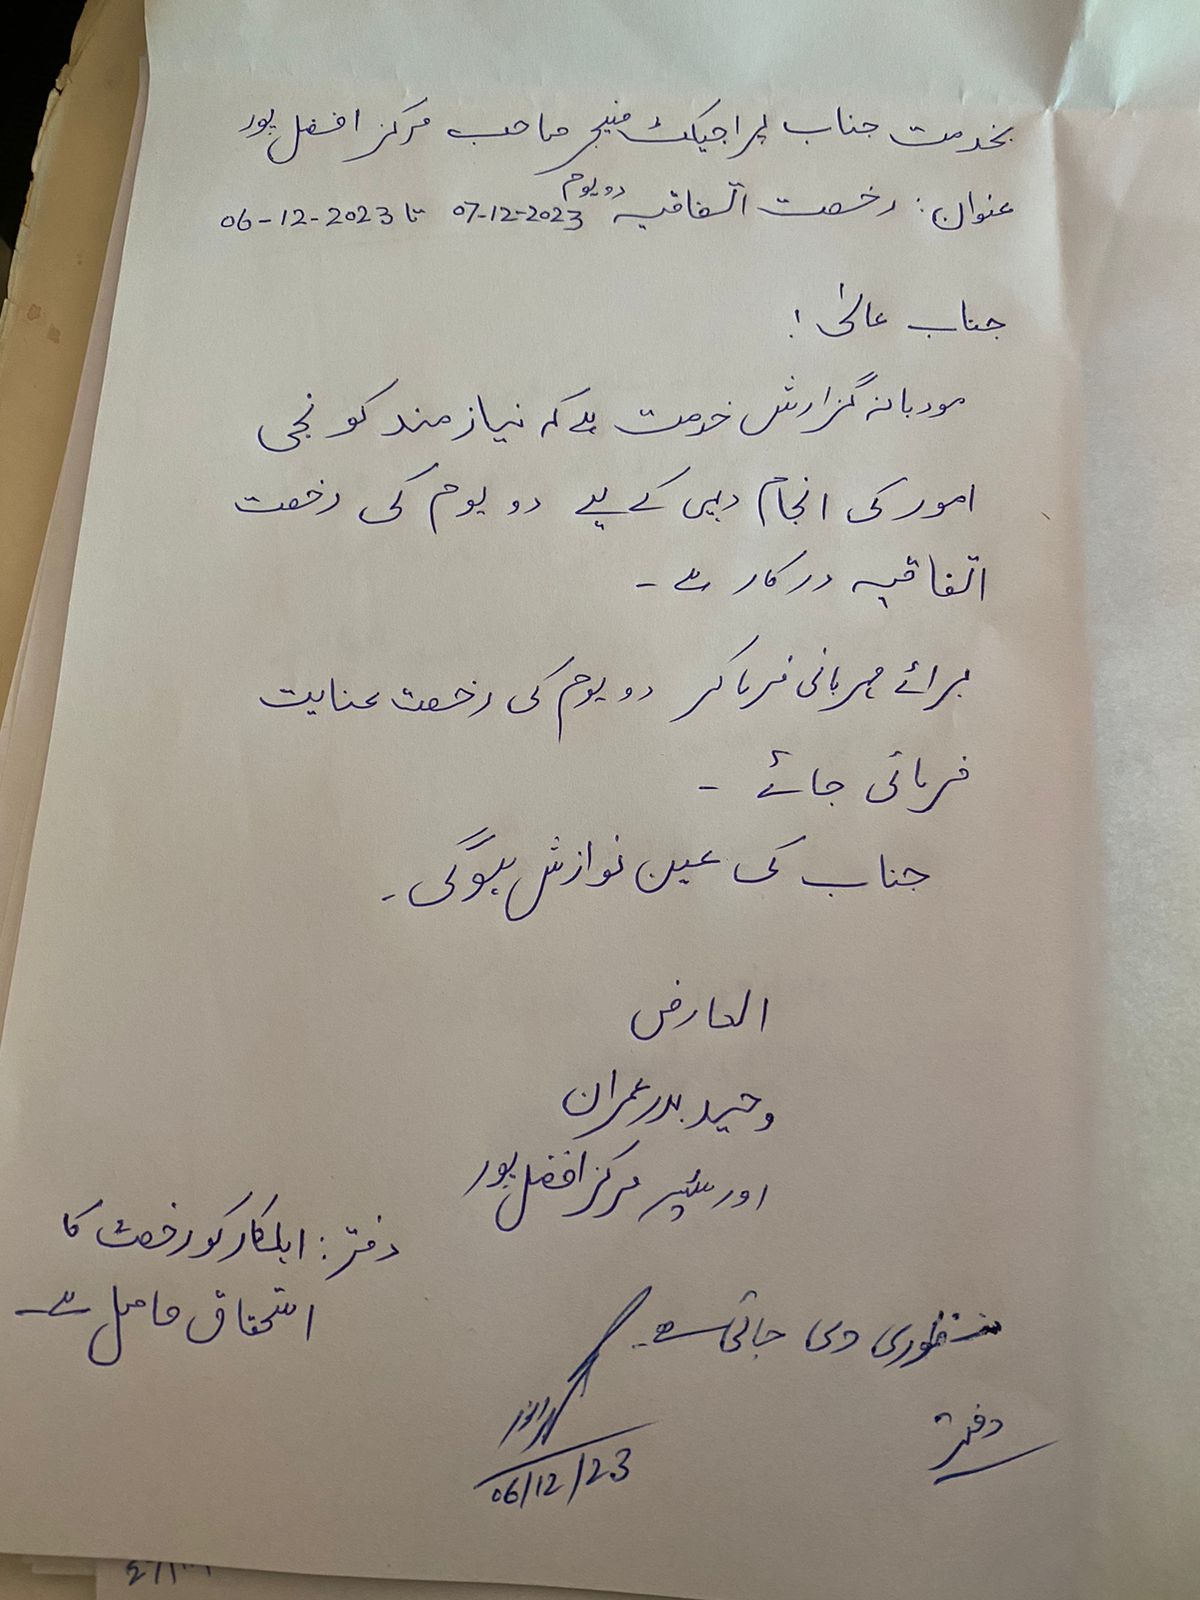 بخدمت جناب پراجیکٹ منیجر صاحب مرکز افضل پور
عنوان: رخصت اتفاقیہ دو یوم 07-12-2023 تا 06-12-2023
جناب عالی!
مودبانہ گزارش خدمت ہے کہ نیازمند کو نجی
امور کی انجام دہی کے لیے دو یوم کی رخصت
اتفاقیہ درکار ہے۔
برائے مہربانی فرما کر دو یوم کی رخصت عنایت
فرمائی جائے۔
جناب کی عین نوازش ہوگی۔
العارض
وحید بدر عمران
اورسئیر مرکز افضل پور
دفتر: اہلکار کو رخصت کا
استحقاق حاصل ہے
منظوری دی جاتی ہے۔
دفتر
06/12/23